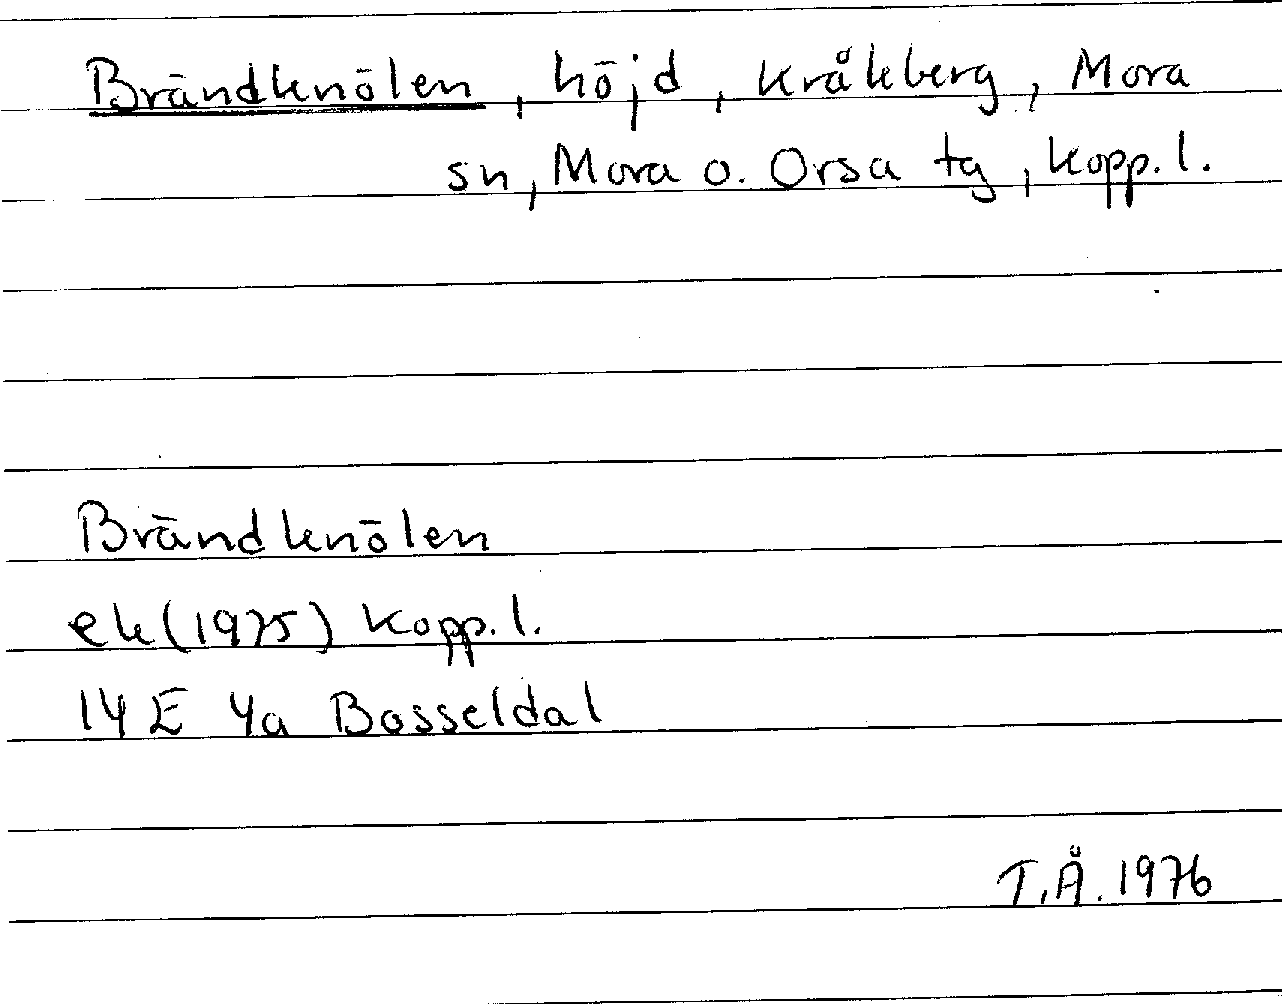 Brändknölen, höjd, Kråkberg, Mora
sn, Mora o. Orsa tg, Kopp.l.
Brändknölen
ek (1975) Kopp.l.
14 E 4a Bosseldal
T.Å. 1976